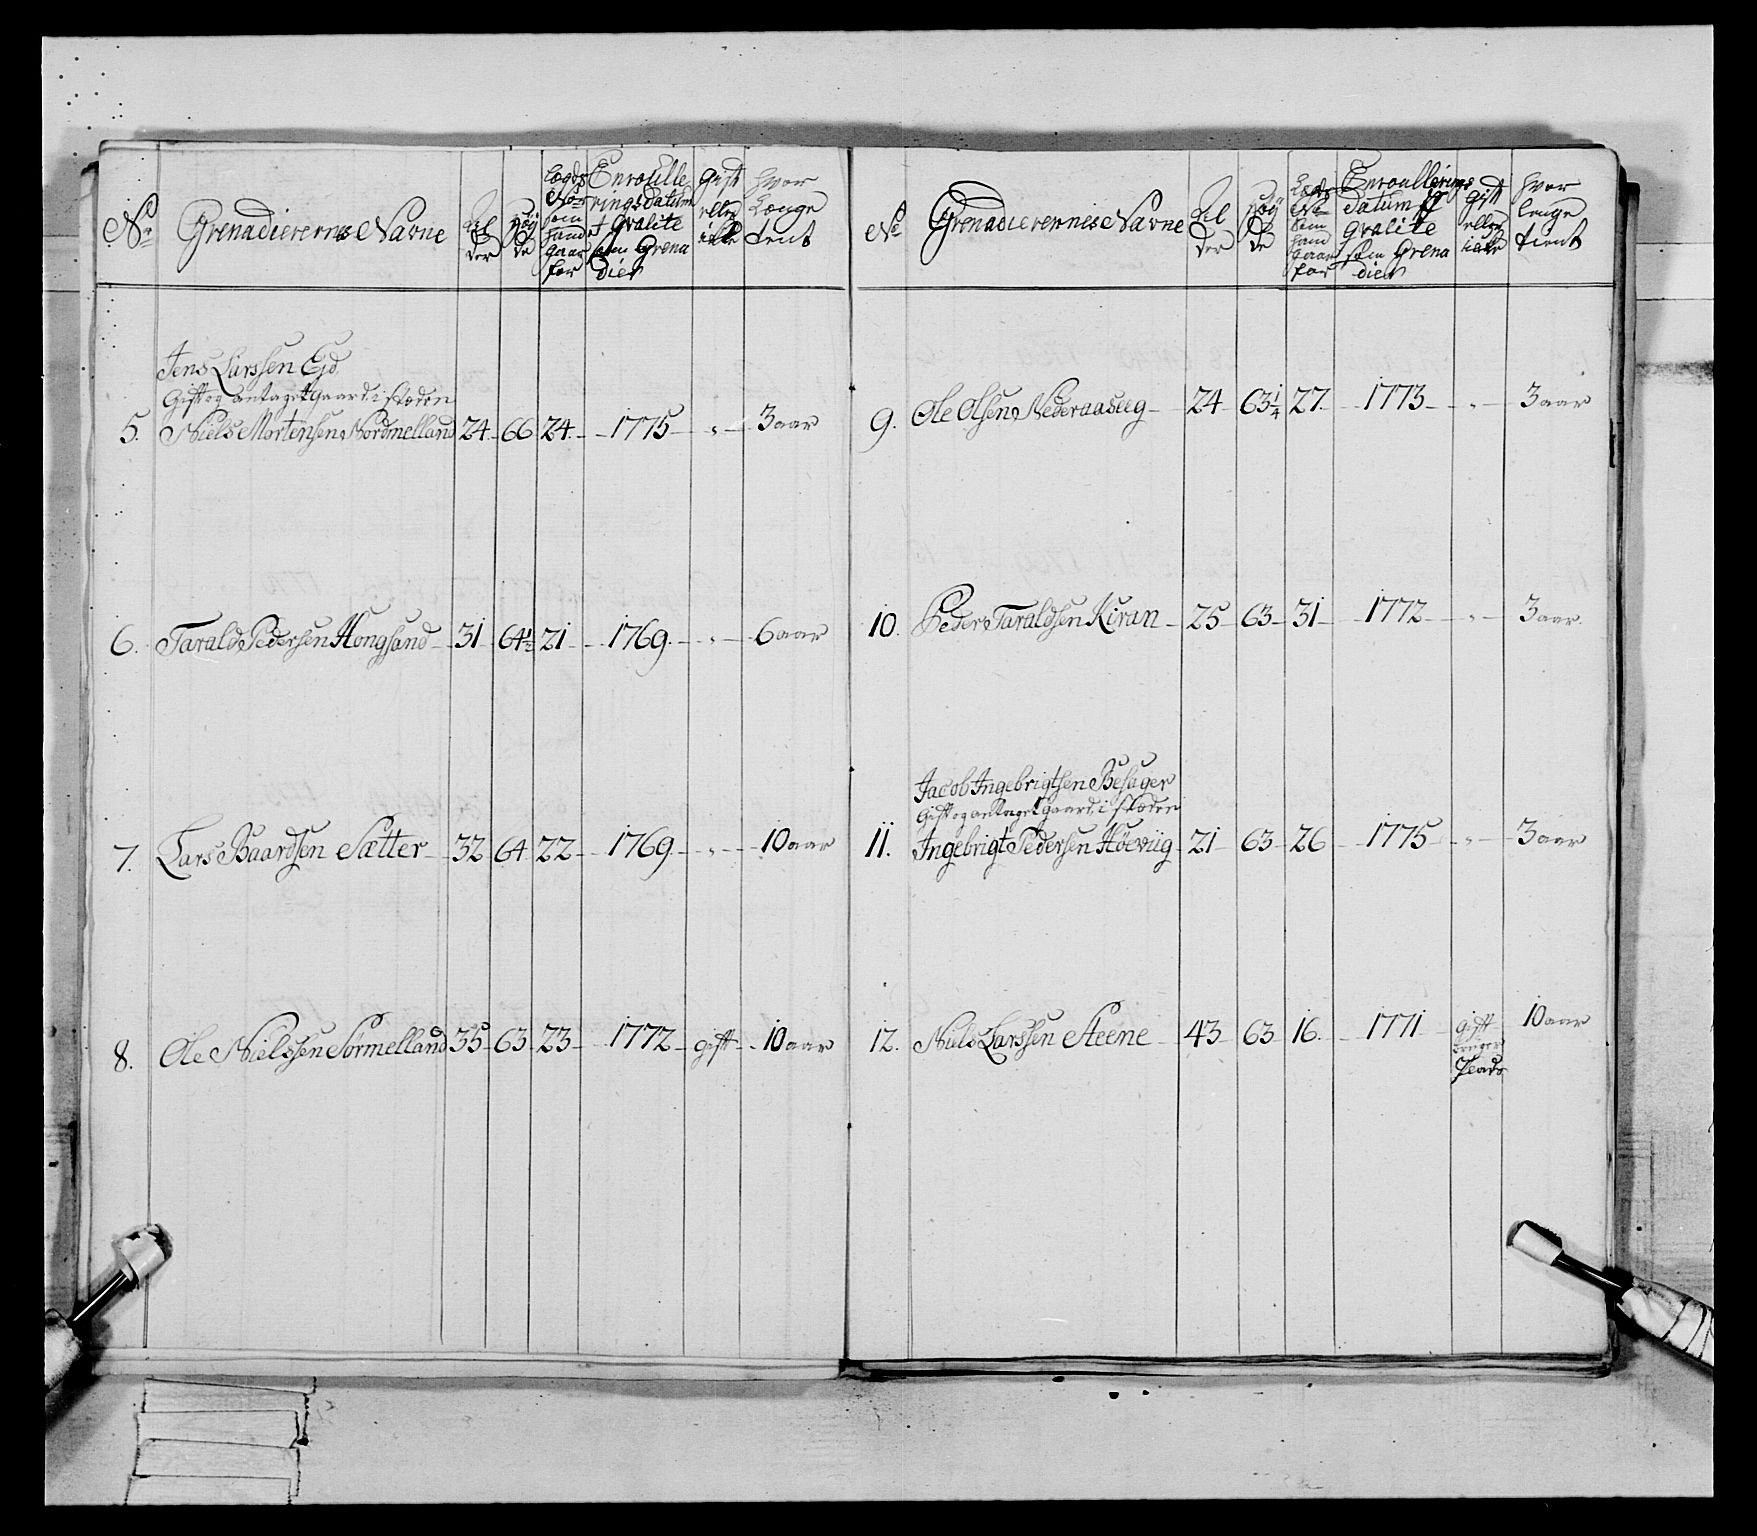 No
Grenadierernes Navne
Al
der
Høy
de
Lægds
No
som
hand
gaar
for
Enroulle
rings datum
i Qvalite
som Grena
dier
Gift
eller
ikke
hvor
Længe
tient
Jens Larssen Eid
Gift og antaget Gaard, i stæden
5. Niels Mortensen Nordmelland 24 66 24 1775 „ 3 aar
6. Tarald Pedersen Hongsand 31 64½ 21 1769 „ 6 aar
7. Lars Baardsen Sætter 32 64 22 1769 „ 10 aar
8. Ole Nielssen Sørmelland 35 63 23 1772 gift 10 aar
No
Grenadierernes Navne
Al
der
Høy
de
Lægds
No
som
hand
gaar
for
Enroullerings
datum i
Qvalite
som Grena
dier
Gift
eller
ikke
hvor
længe
tient
9. Ole Olsen Nederaaseeg 24 63¼ 27 1773 „ 3 aar
10. Peder Taraldsen Kiran 25 63 31 1772 „ 3 aar
Jacob Ingebrigtsen Besager
Gift og antaget gaard, i stæden
11. Ingebrigt Pedersen Høeviig 21 63 26 1775 „ 3 aar
12. Niels Larssen Steene 43 63 16 1771 gift 10 aar
bruger